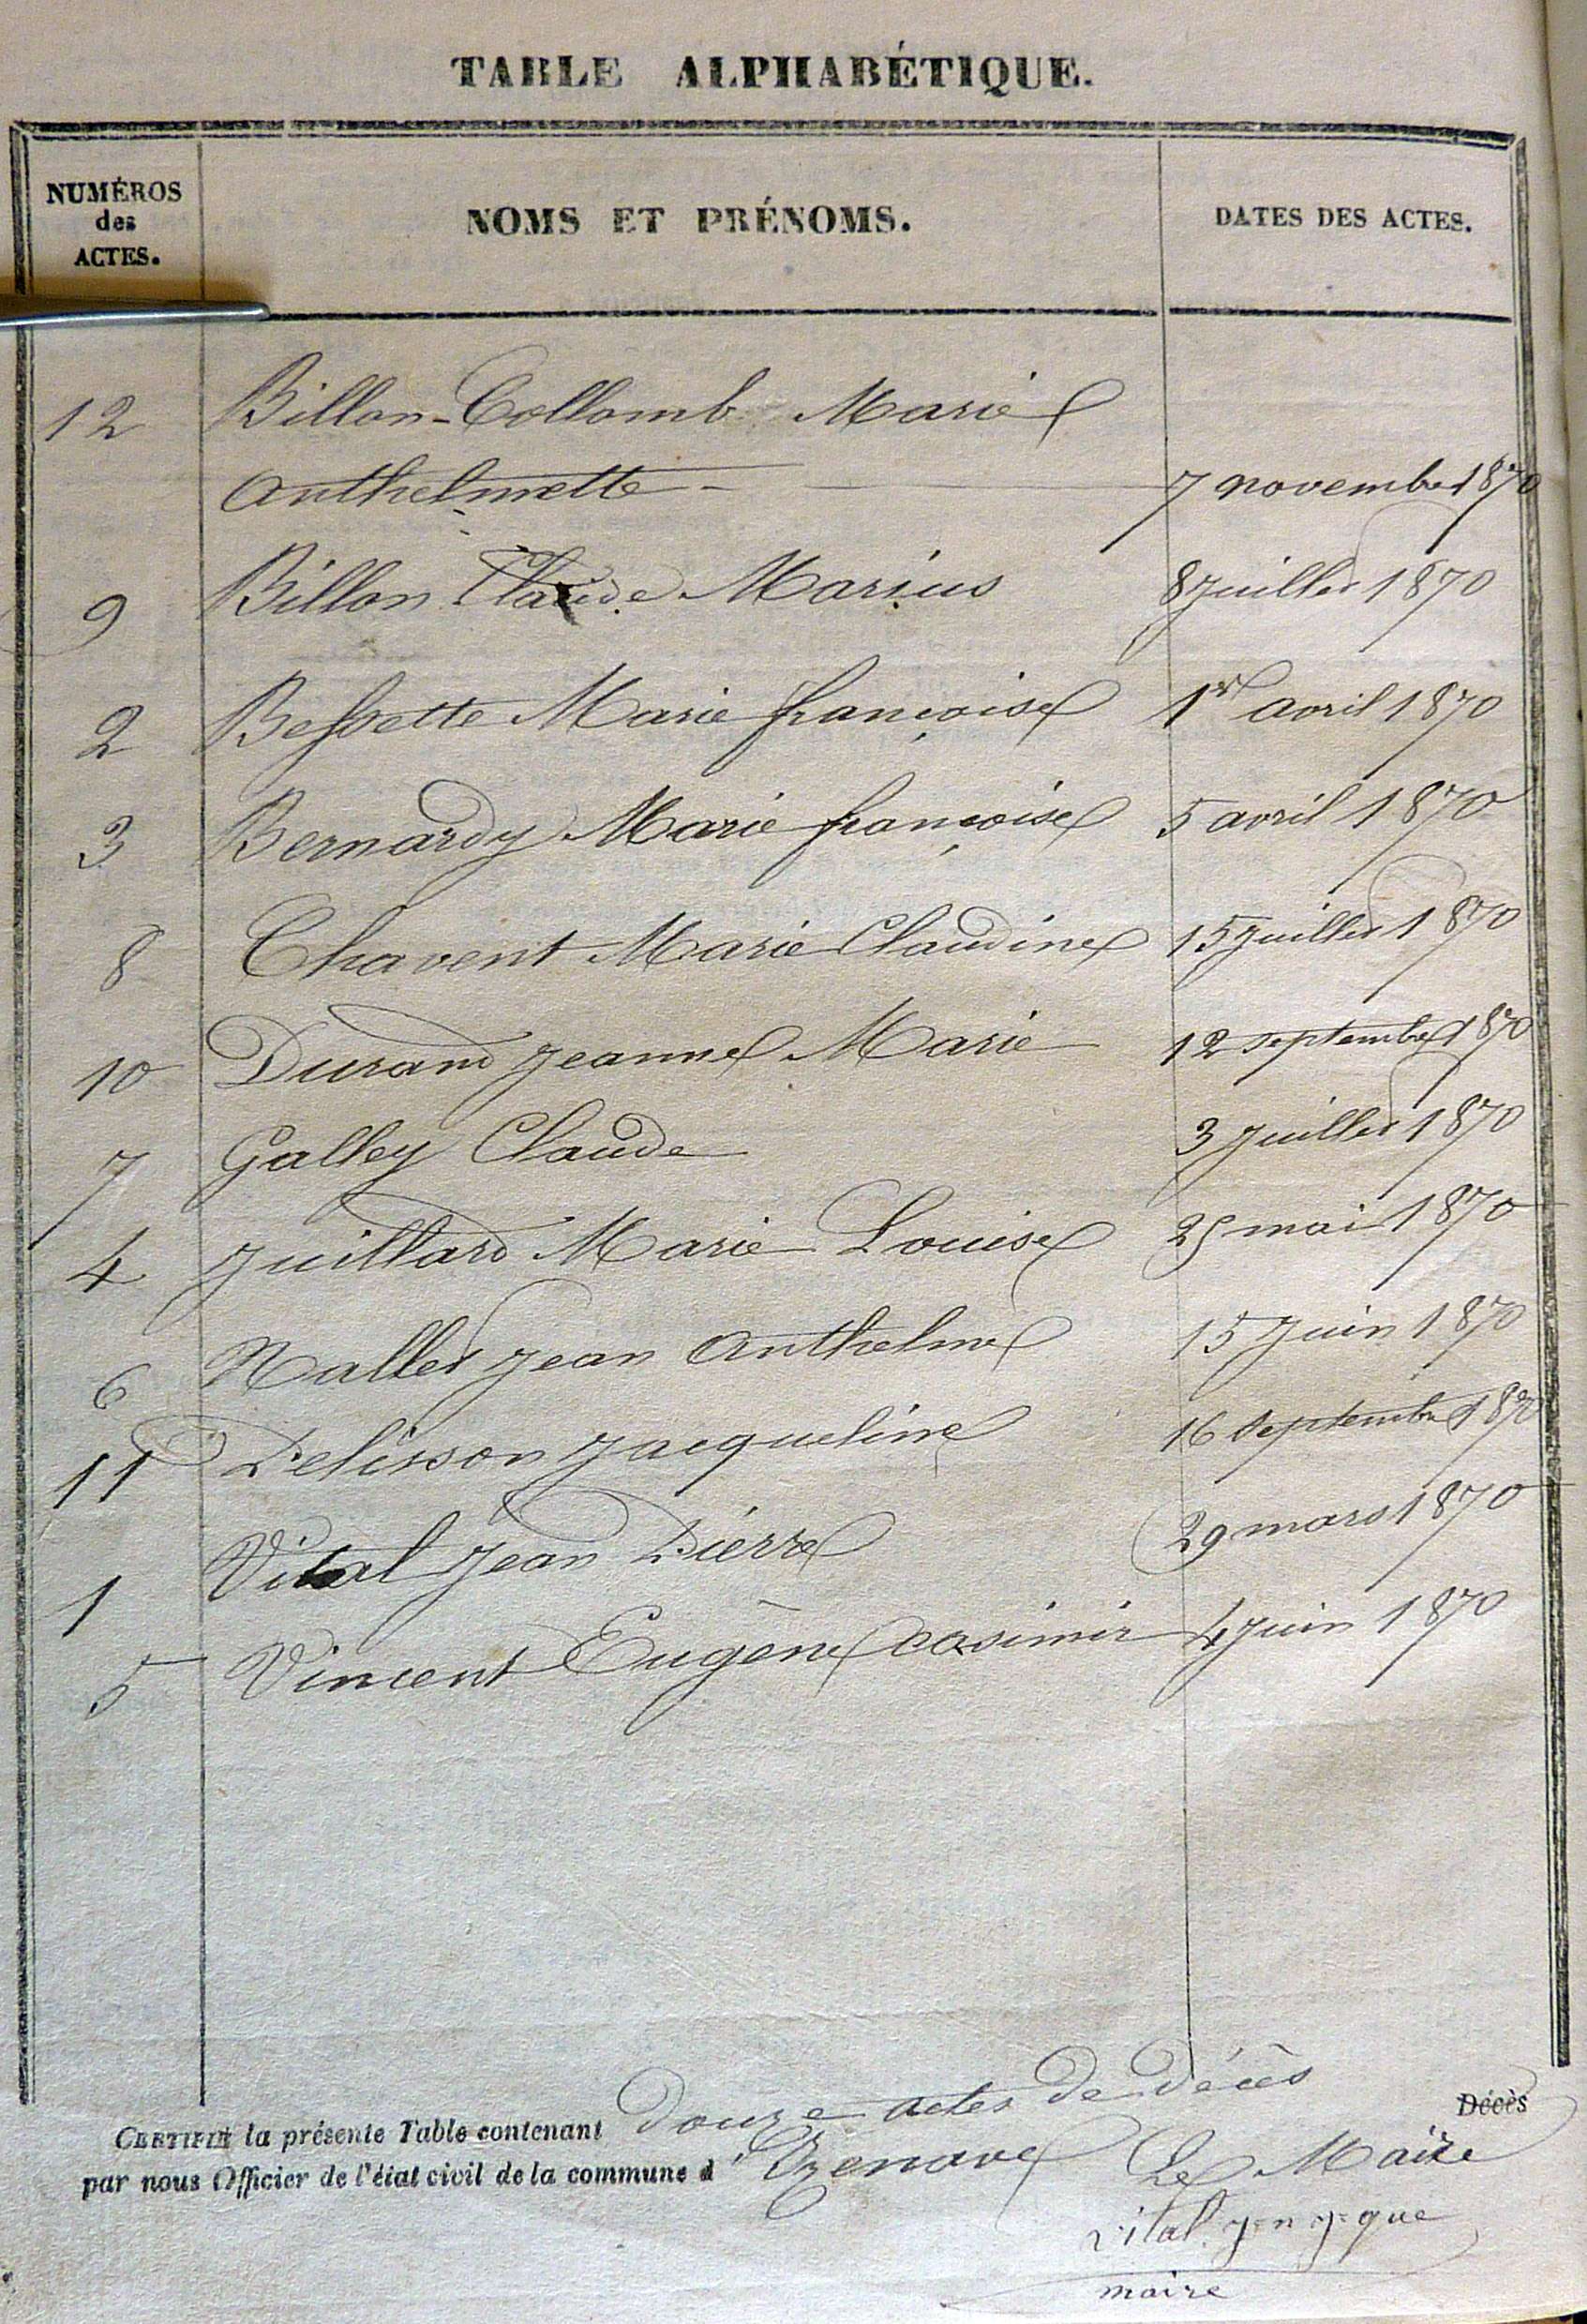 TABLE ALPHABÉTIQUE.
NUMÉROS
des
ACTES.
NOMS ET PRÉNOMS.
DATES DES ACTES.
12 Billon-Collomb Marie
Anthelmette - 7 novembre 1870
9 Billon Claude Marius 8 juillet 1870
2 Bessette Marie françoise 1er avril 1870
3 Bernardy Marie françoise 5 avril 1870
8 Chavent Marie Claudine 15 juillet 1870
10 Durand jeanne Marie 12 septembre 1870
7 Galley Claude 3 juillet 1870
4 Juillard Marie Louise 25 mai 1870
6 Nallet jean Anthelme 15 juin 1870
11 Pelisson jacqueline 16 septembre 1870
1 Vital jean Pierre 29 mars 1870
5 Vincent Eugène casimir 4 juin 1870
CERTIFIÉ la présente Table contenant douze actes de décès
Décès
par nous Officier de l'état civil de la commune d'Izenave Le Maire
Vital jn jque
maire